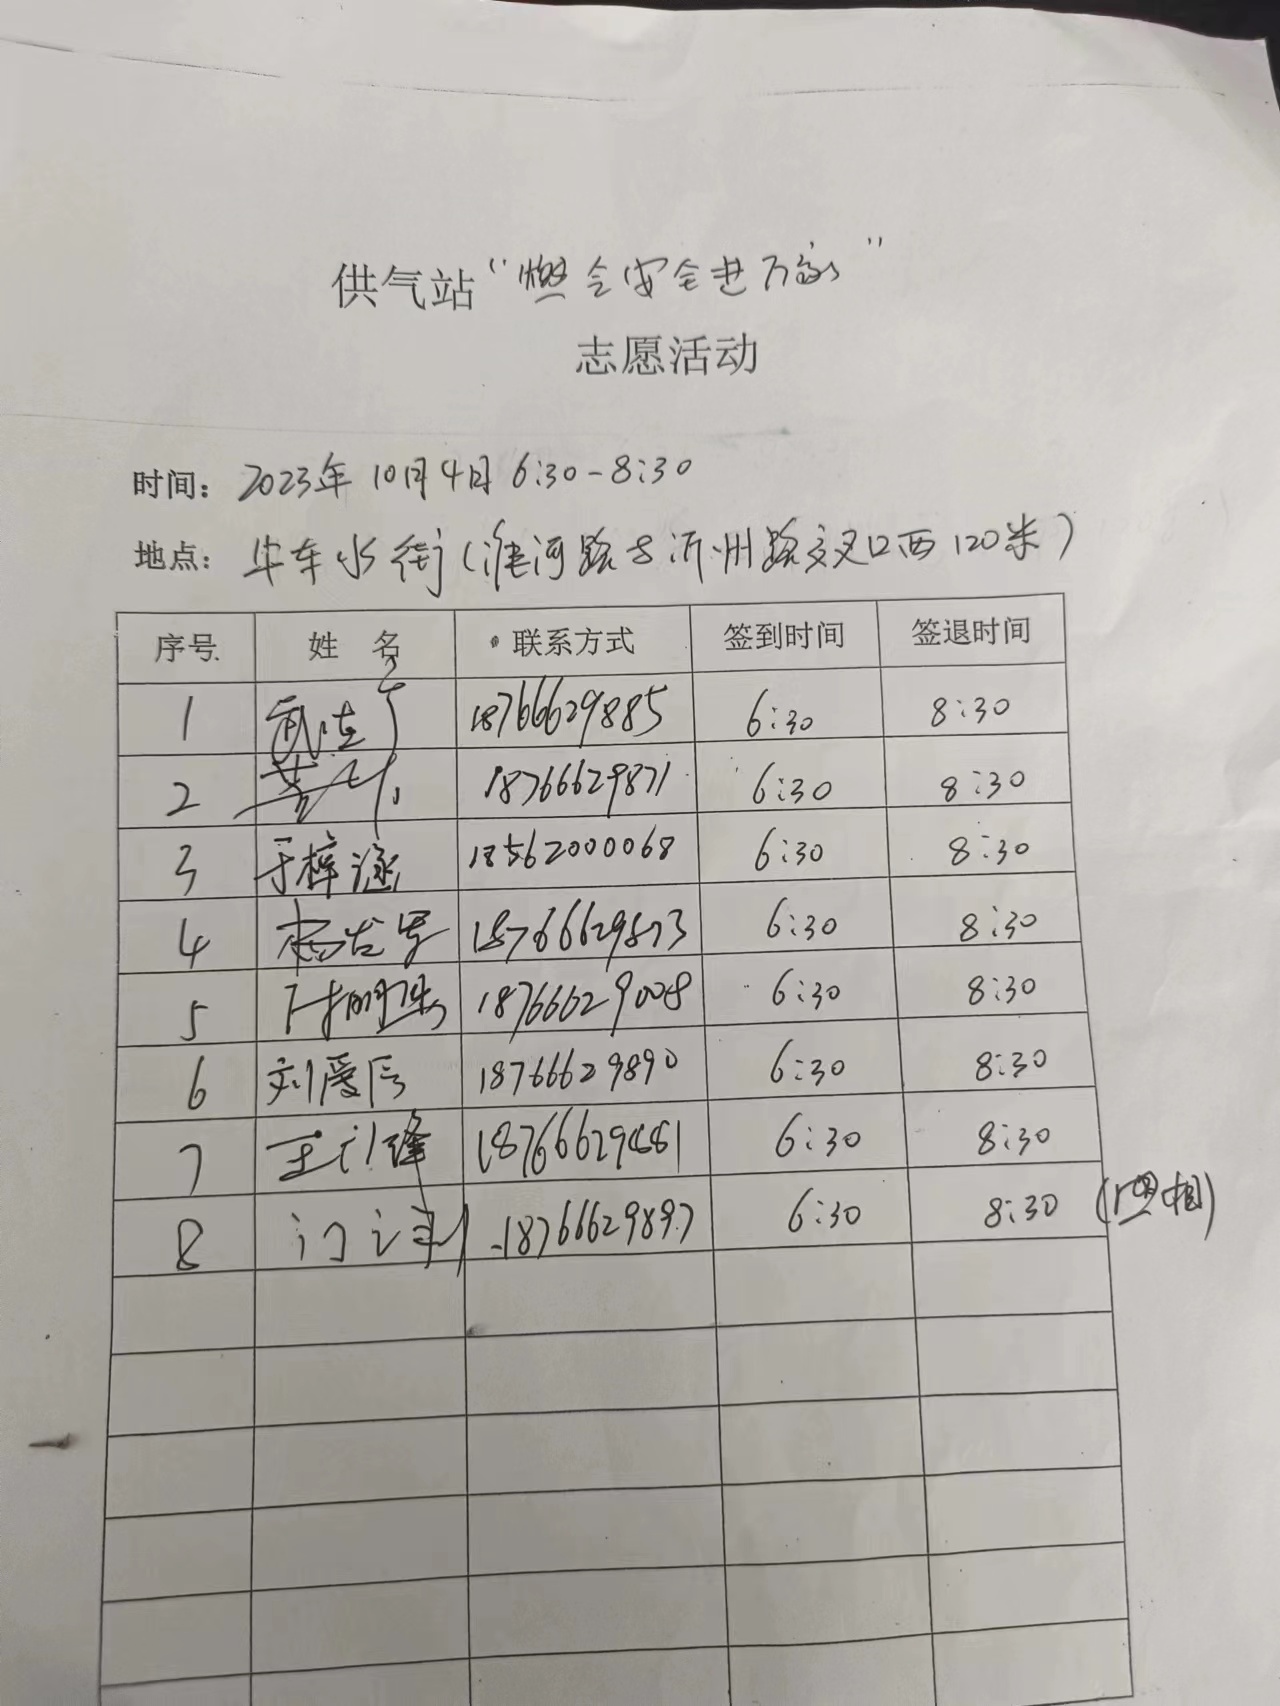 供气站“燃气安全进万家”
志愿活动
时间：2023年10月4日 6:30-8:30
地点：华车水街(淮河路与沂州路交叉口西120米)
序号 姓名 联系方式 签到时间 签退时间
1 18766629885 6:30 8:30
2 18766629871 6:30 8:30
3 于梓涵 18562000068 6:30 8:30
4 18766629873 6:30 8:30
5 18766629008 6:30 8:30
6 刘爱辰 18766629890 6:30 8:30
7 6:30 8:30
8 18766629897 6:30 8:30 (照相)